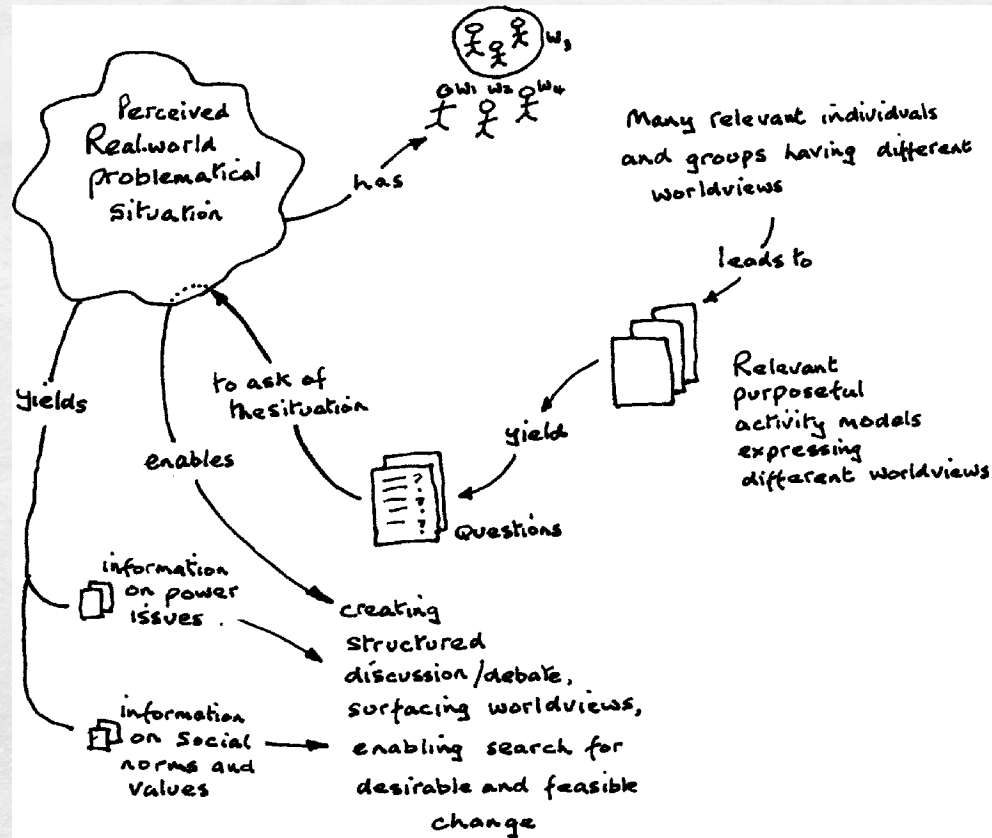 Perceived
Real-world
problematical
situation
has
W3
W1 W2 W4
Many relevant individuals
and groups having different
worldviews
leads to
Relevant
purposeful
activity models
expressing
different worldviews
yield
? 
?
?
?
Questions
to ask of
the situation
yields
enables
information
on power
issues.
information
on Social
norms and
values
creating
structured
discussion/debate,
surfacing worldviews,
enabling search for
desirable and feasible
change